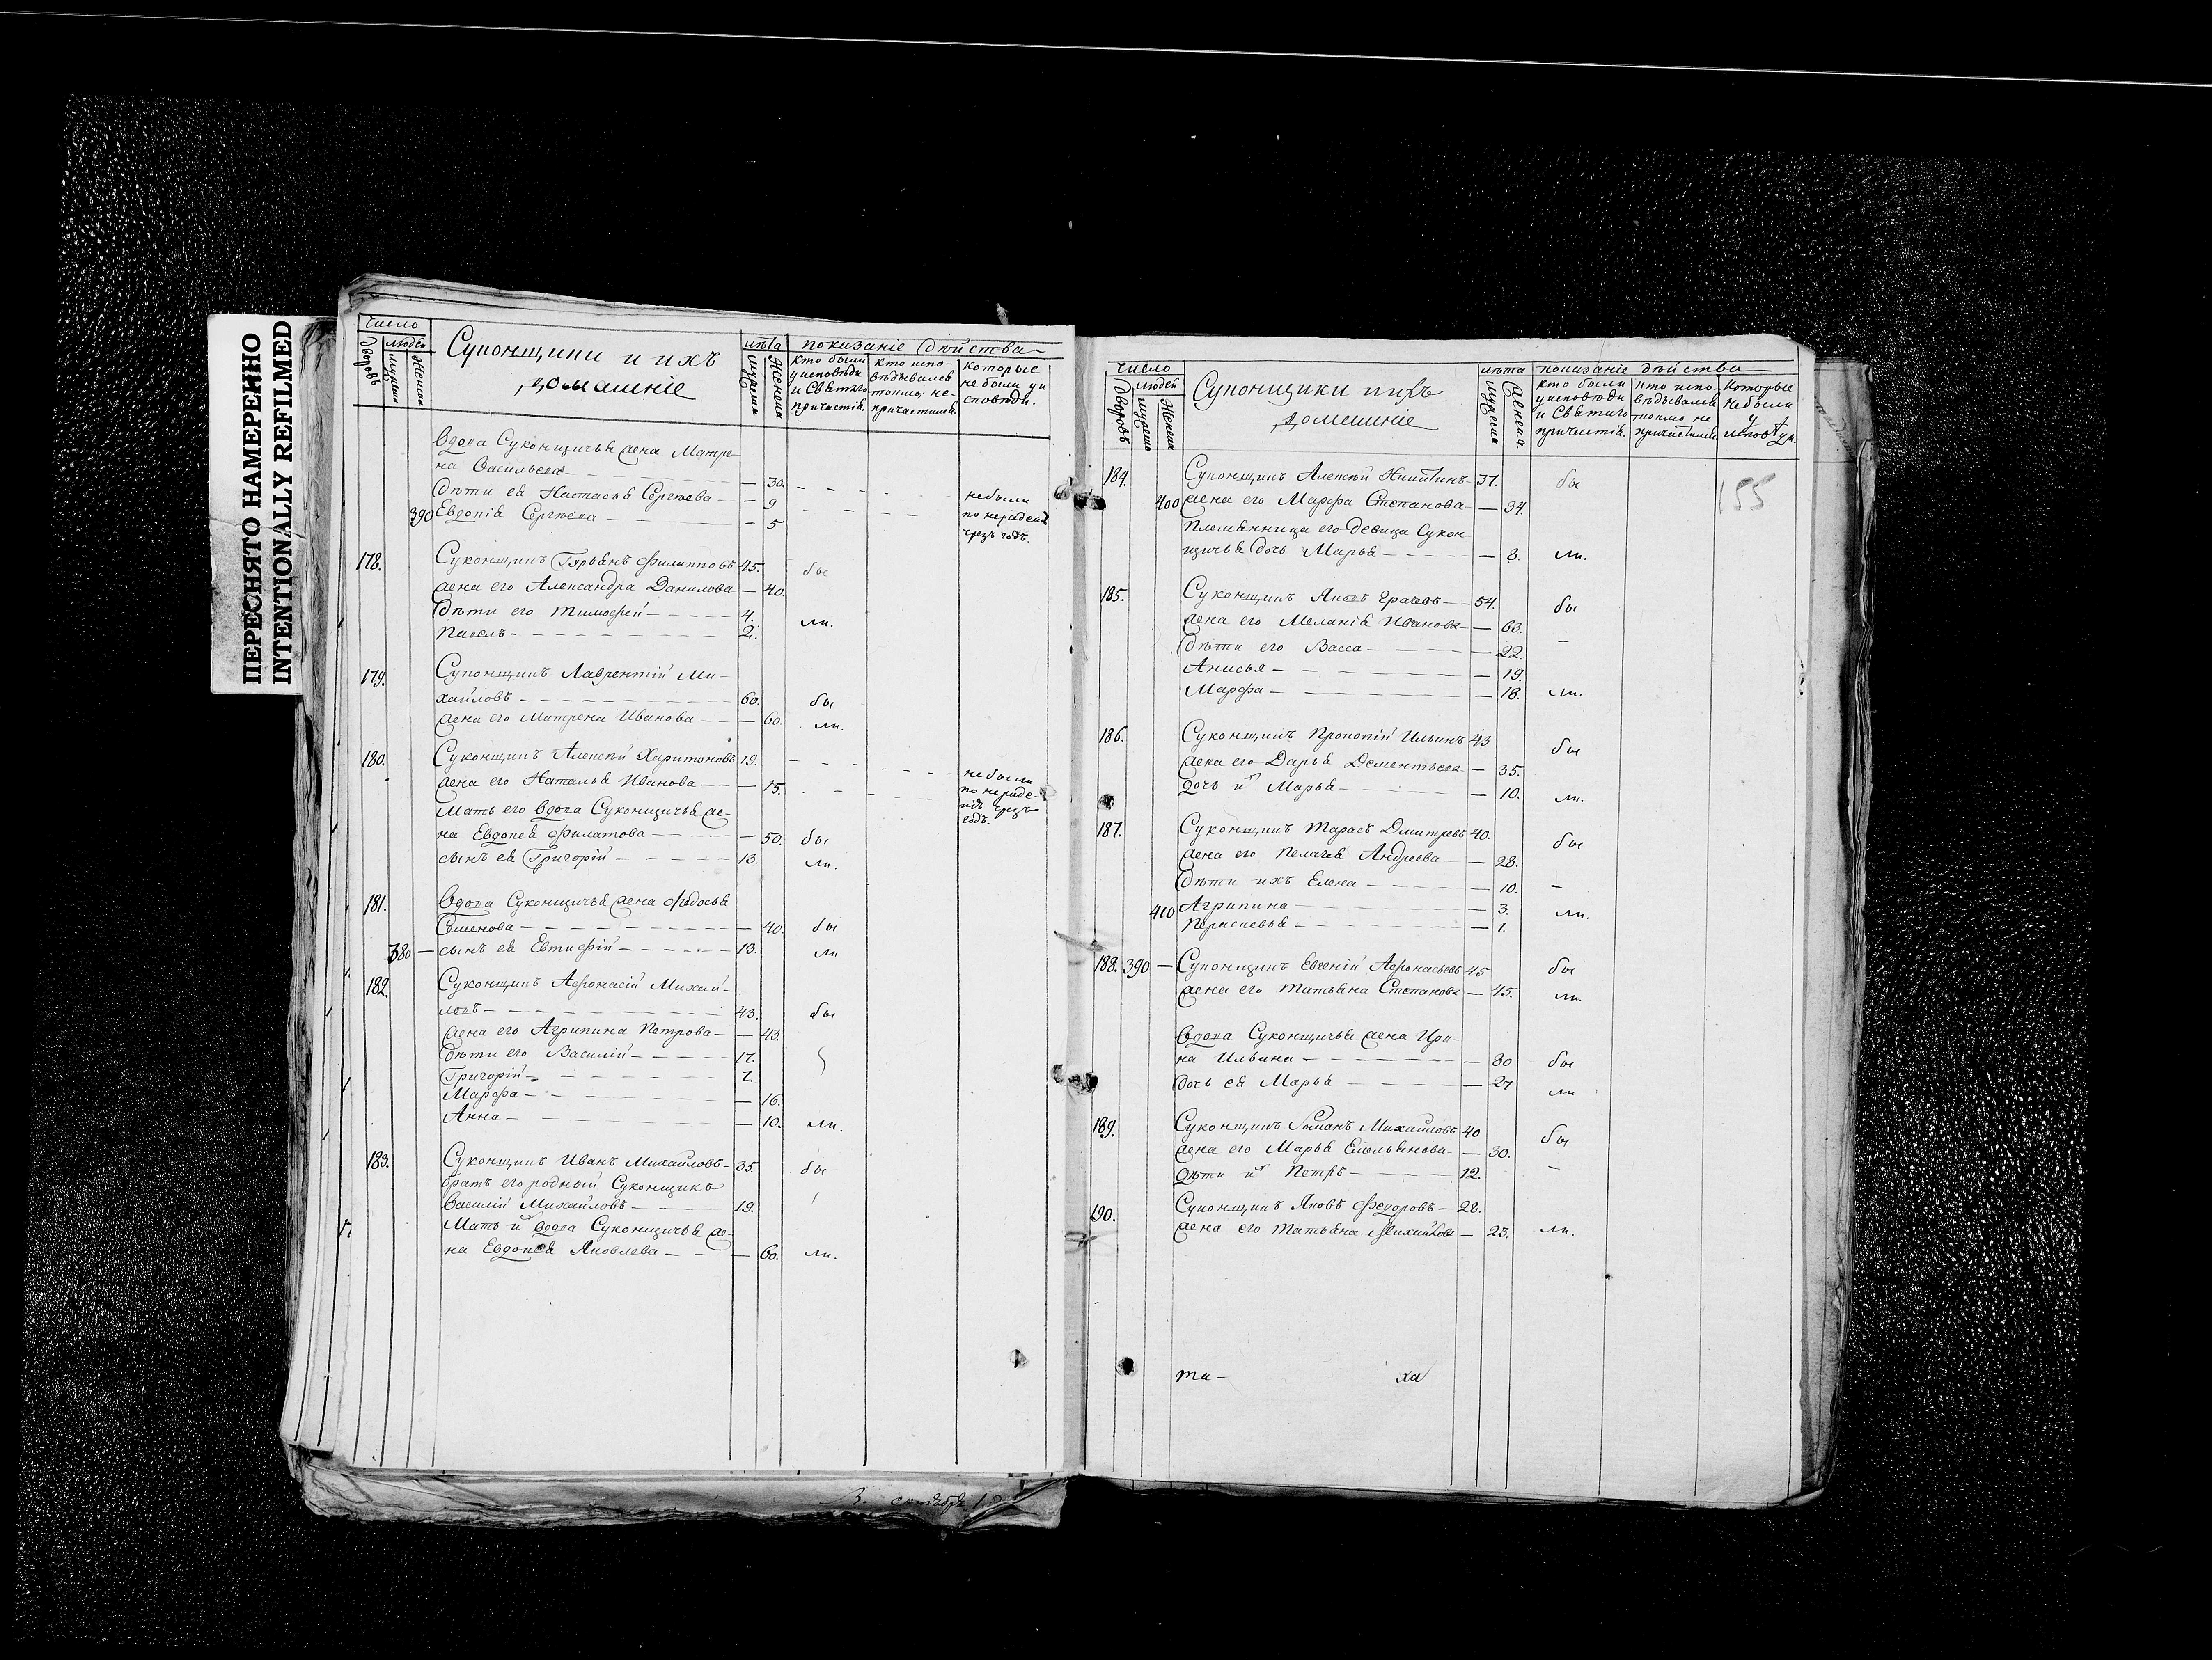 ПЕРЕСНЯТО НАМЕРЕННО
INTENTIONALLY REFILMED
число
Дворовъ
людей
мужеска
Женска
Суконщики и ихъ
домашніе
лѣта
мужеска
Женска
показаніе действа
кто были
у исповѣди
и Святаго
причастія.
кто испо-
вѣдывался
токмо не-
причастился.
которые
не были у и
сповѣди.
вдова Суконщичья жена Матре-
на Васильева — 30.
дѣти ея Настасья Сергѣева — — 9
390 Евдокія Сергѣева — — 5
не были
по нерадѣнію
чрезъ годъ.
178. Суконщикъ Гурьянъ Филипповъ 45. бы
жена его Александра Данилова — 40.
дѣти его Тимофей — — — — 4. ли.
Павелъ — — — — — 2.
179. Суконщикъ Лаврентій Ми-
хайловъ — — — — — 60. бы
жена его Матрена Иванова — — 60. ли.
180. Суконщикъ Алексѣй Харитоновъ 19.
жена его Наталья Иванова — — 15.
не были
по нераде-
нію чрезъ
годъ.
Мать его вдова Суконщичья же-
на Евдокея Филатова — — — — 50. бы
сынъ ея Григорій — — — — 13. ли.
181. вдова Суконщичья жена Федосья
Семенова — — — — — 40. бы
380 — сынъ ея Евтифій — — — — 13. ли
182. Суконщикъ Афонасій Михай-
ловъ — — — — — 43. бы
жена его Агрипина Петрова — — 43.
дѣти его Василій — — — — 17.
Григорій — — — — — 7.
Марфа — — — — — 16.
Анна — — — — — 10. ли.
183. Суконщикъ Иванъ Михайловъ — 35. бы
братъ его родный Суконщикъ
Василій Михайловъ — — — 19.
Мать ихъ вдова Суконщичья же-
на Евдокея Яковлева — — — 60. ли.
октября
число
Дворовъ
людей
мужеско
Женска
Суконщики и ихъ
домашніе
лѣта
мужеска
Женска
показаніе действа
кто были
у исповѣди
и Святаго
причастія.
кто испо-
вѣдывался
токмо не
причастился
Которые
не были
у
исповѣди.
155
184. Суконщикъ Алексѣй Никитинъ — 37. бы
400 жена его Марфа Степанова — — 34.
Племянница его девица Сукон-
щичья дочь Марья — — — — — 8. ли.
185. Суконщикъ Яковъ — — 54. бы
жена его Меланія Иванова — — 63.
дѣти его Васса — — — — — 22. —
Анисья — — — — — 19.
Марфа — — — — — 18. ли.
186. Суконщикъ Прокопій Ильинъ 43 бы
жена его Дарья Дементьева — 35.
дочь ихъ Марья — — — — 10. ли.
187. Суконщикъ Тарасъ Дмитревъ 40. бы
жена его Пелагея Андреева — — 28.
дѣти ихъ Елена — — — — — 10. —
410 Агрипина — — — — — 3. ли.
Парасковья — — — — — 1.
188. 390 — Суконщикъ Евгеній Афонасьевъ 45 бы
жена его Татьяна Степанова — 45. ли.
вдова Суконщичья жена Ири-
на Ильина — — — — — 80 бы
дочь ея Марья — — — — 27 ли
189. Суконщикъ Романъ Михайловъ 40 бы
жена его Марья Емельянова — — 30.
дѣти ихъ Петръ — — — 12. —
190. Суконщикъ Яковъ Федоровъ — 28.
жена его Татьяна Михайлова — 23. ли.
та- ха